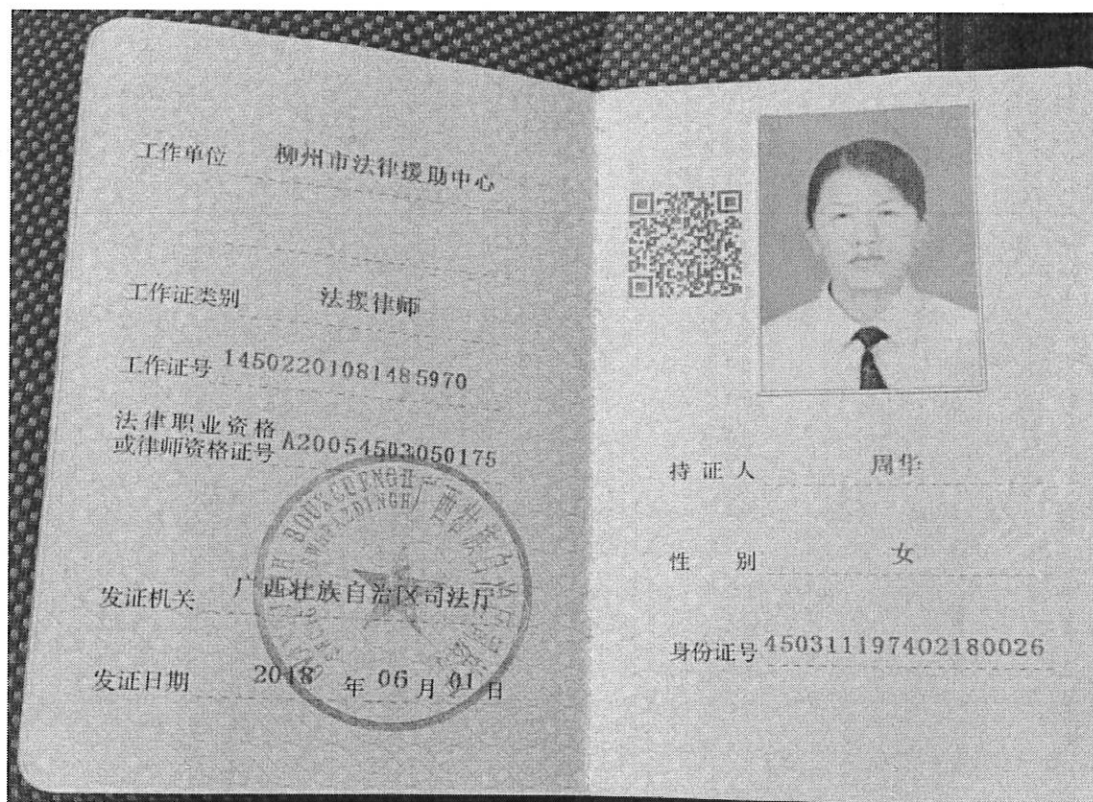 工作单位 柳州市法律援助中心
工作证类别 法援律师
工作证号 14502201081485970
法律职业资格
或律师资格证号 A20054503050175
发证机关 广西壮族自治区司法厅
发证日期 2018 年 06 月 01 日
持证人 周华
性别 女
身份证号 450311197402180026